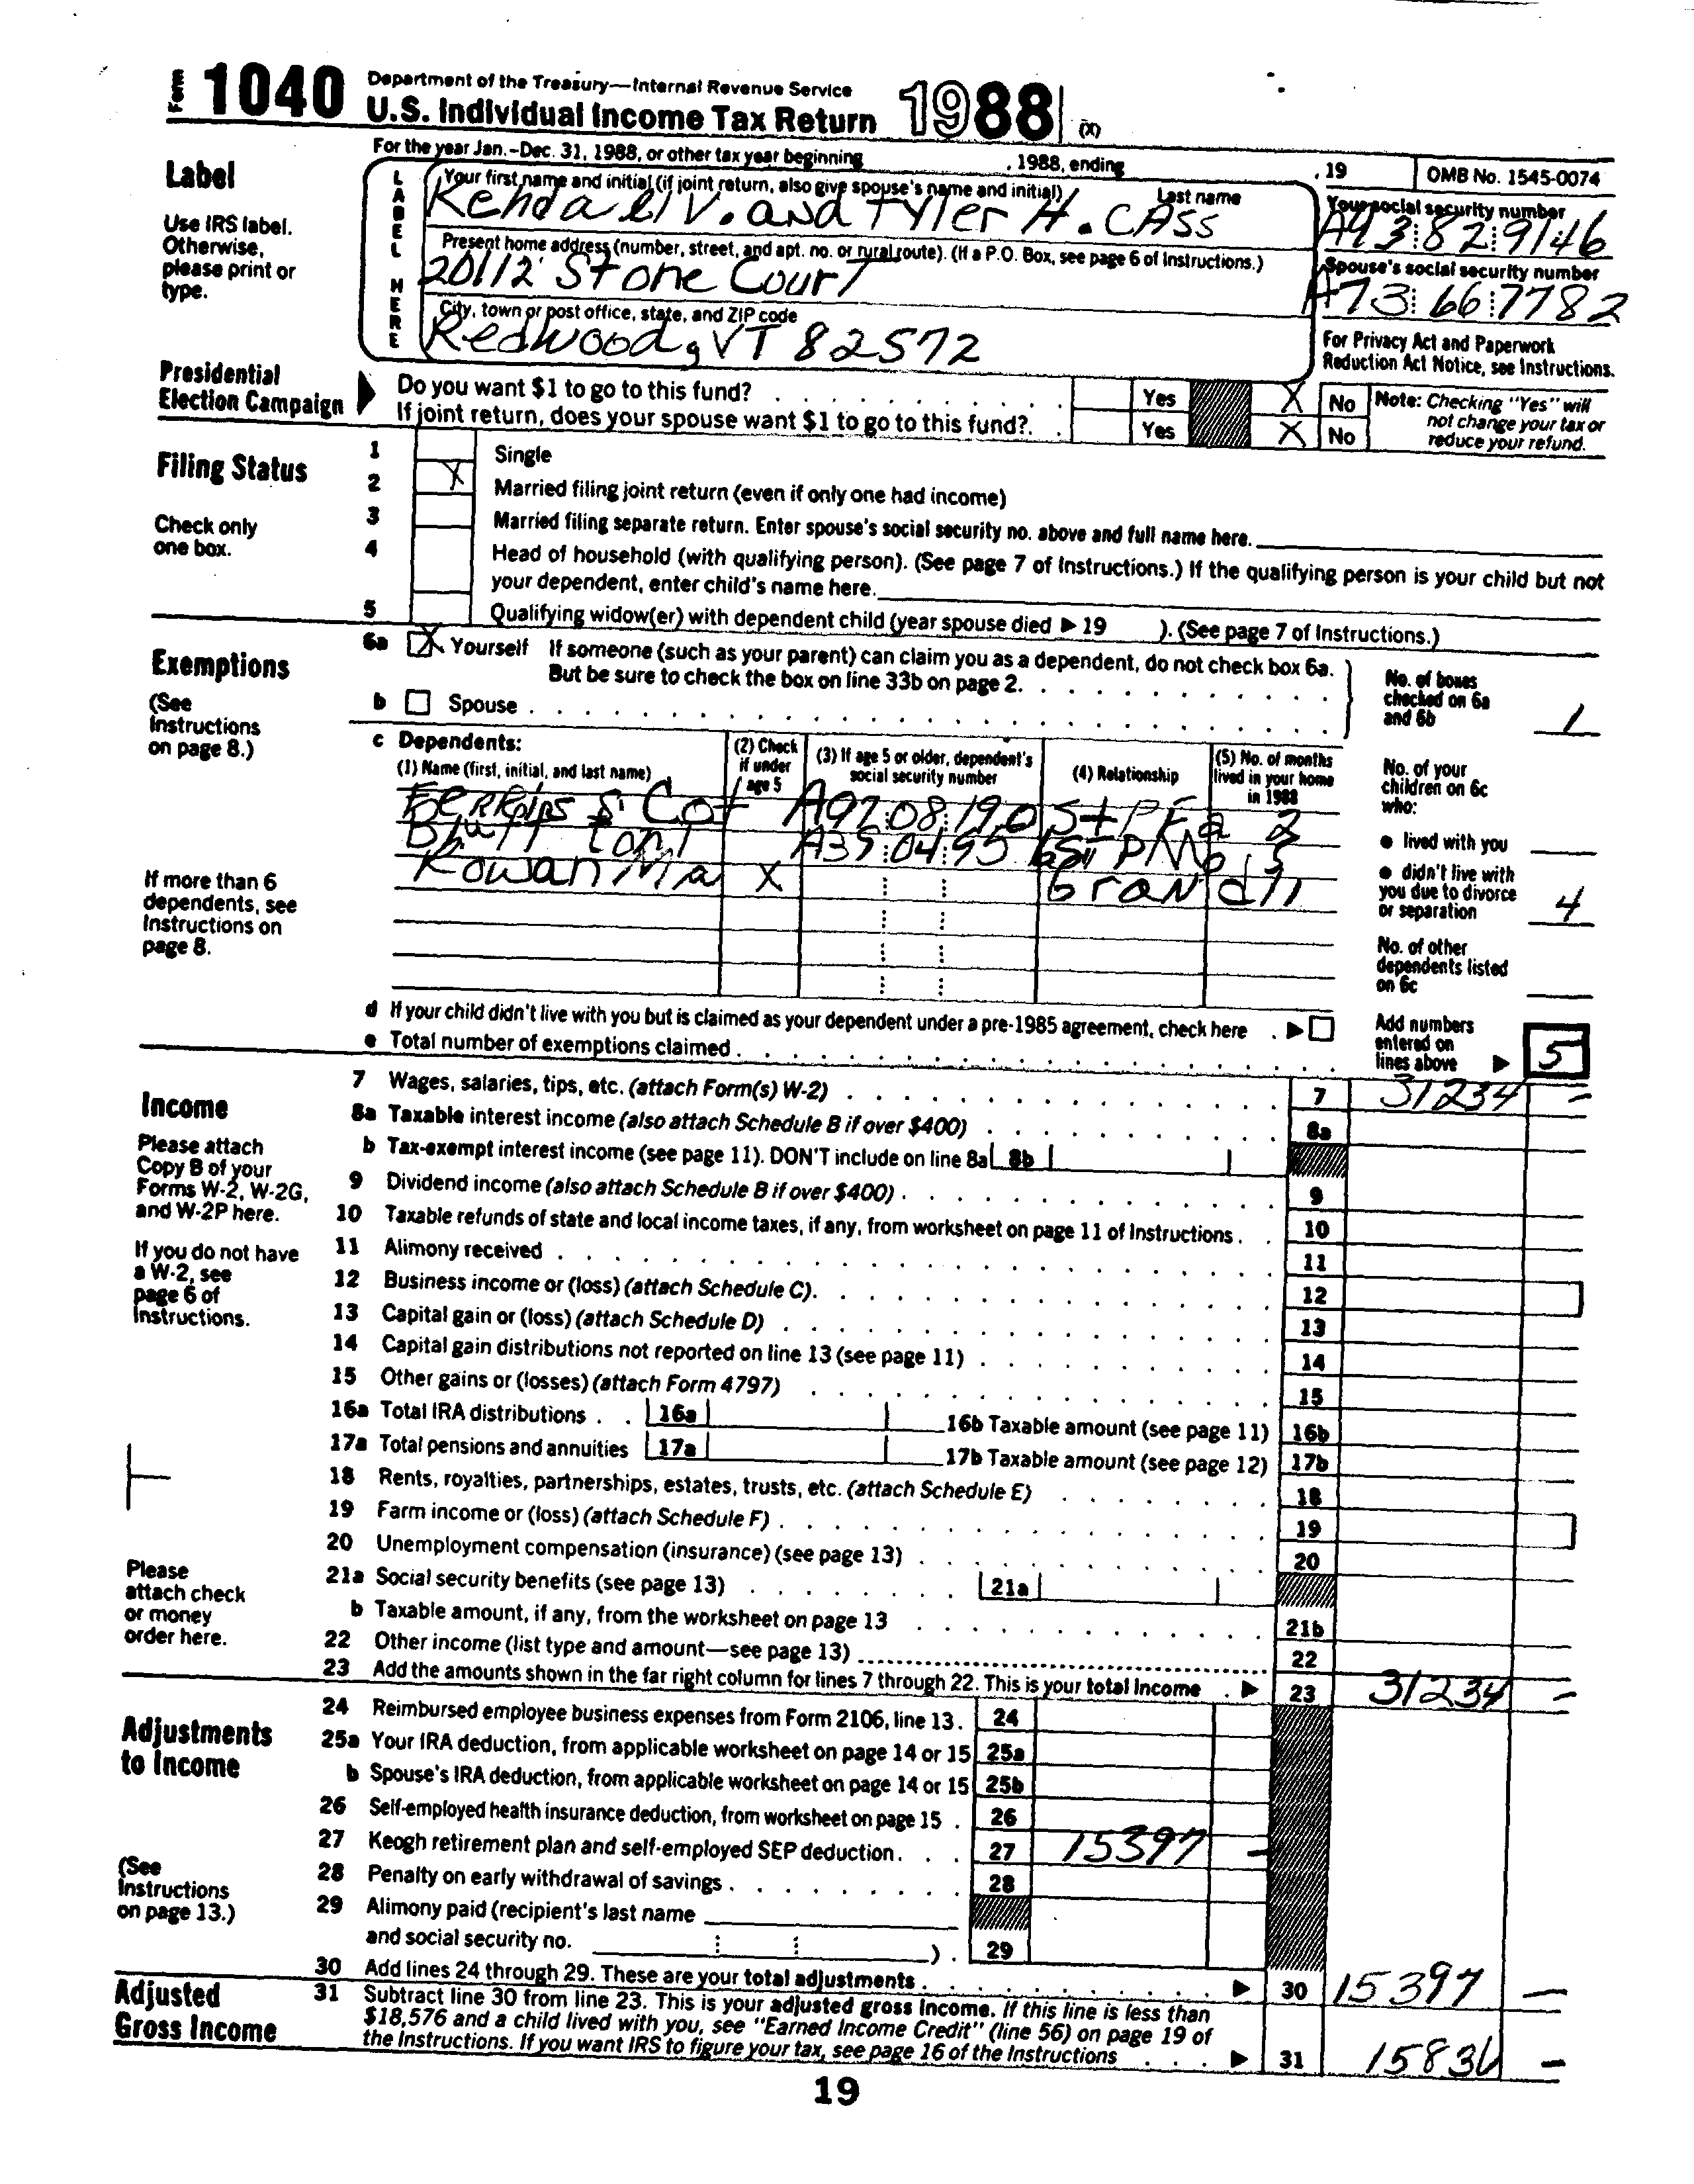 Form 1040 Department of the Treasury—Internal Revenue Service
U.S. Individual Income Tax Return 1988 (X)
For the year Jan.-Dec. 31, 1988, or other tax year beginning , 1988, ending , 19 OMB No. 1545-0074
Label
Use IRS label.
Otherwise,
please print or
type.
LABEL HERE
Your first name and initial (if joint return, also give spouse's name and initial) Last name
Kendall V. and Tyler H. Cass
Your social security number
A43 82 9146
Present home address (number, street, and apt. no. or rural route). (If a P.O. Box, see page 6 of Instructions.)
20112 Stone Court
Spouse's social security number
A73 66 7782
City, town or post office, state, and ZIP code
Redwood, VT 82572
For Privacy Act and Paperwork
Reduction Act Notice, see Instructions.
Presidential
Election Campaign
Do you want $1 to go to this fund? Yes X No
If joint return, does your spouse want $1 to go to this fund? Yes X No
Note: Checking "Yes" will
not change your tax or
reduce your refund.
Filing Status
Check only
one box.
1 Single
2 X Married filing joint return (even if only one had income)
3 Married filing separate return. Enter spouse's social security no. above and full name here.
4 Head of household (with qualifying person). (See page 7 of Instructions.) If the qualifying person is your child but not
your dependent, enter child's name here.
5 Qualifying widow(er) with dependent child (year spouse died ▶ 19 ). (See page 7 of Instructions.)
Exemptions
(See
Instructions
on page 8.)
6a X Yourself If someone (such as your parent) can claim you as a dependent, do not check box 6a.
But be sure to check the box on line 33b on page 2.
b Spouse
No. of boxes
checked on 6a
and 6b 1
c Dependents:
(1) Name (first, initial, and last name)
(2) Check
if under
age 5
(3) If age 5 or older, dependent's
social security number
(4) Relationship
(5) No. of months
lived in your home
in 1988
A97 08 190 StPFa 2
A35 04 95
Rowan Ma X Grand 11
If more than 6
dependents, see
Instructions on
page 8.
No. of your
children on 6c
who:
● lived with you
● didn't live with
you due to divorce
or separation 4
No. of other
dependents listed
on 6c
d If your child didn't live with you but is claimed as your dependent under a pre-1985 agreement, check here ▶
e Total number of exemptions claimed
Add numbers
entered on
lines above ▶ 5
Income
Please attach
Copy B of your
Forms W-2, W-2G,
and W-2P here.
If you do not have
a W-2, see
page 6 of
Instructions.
Please
attach check
or money
order here.
7 Wages, salaries, tips, etc. (attach Form(s) W-2) 7 31234 –
8a Taxable interest income (also attach Schedule B if over $400) 8a
b Tax-exempt interest income (see page 11). DON'T include on line 8a 8b
9 Dividend income (also attach Schedule B if over $400) 9
10 Taxable refunds of state and local income taxes, if any, from worksheet on page 11 of Instructions 10
11 Alimony received 11
12 Business income or (loss) (attach Schedule C) 12
13 Capital gain or (loss) (attach Schedule D) 13
14 Capital gain distributions not reported on line 13 (see page 11) 14
15 Other gains or (losses) (attach Form 4797) 15
16a Total IRA distributions 16a 16b Taxable amount (see page 11) 16b
17a Total pensions and annuities 17a 17b Taxable amount (see page 12) 17b
18 Rents, royalties, partnerships, estates, trusts, etc. (attach Schedule E) 18
19 Farm income or (loss) (attach Schedule F) 19
20 Unemployment compensation (insurance) (see page 13) 20
21a Social security benefits (see page 13) 21a
b Taxable amount, if any, from the worksheet on page 13 21b
22 Other income (list type and amount—see page 13) 22
23 Add the amounts shown in the far right column for lines 7 through 22. This is your total income ▶ 23 31234 –
Adjustments
to Income
(See
Instructions
on page 13.)
24 Reimbursed employee business expenses from Form 2106, line 13. 24
25a Your IRA deduction, from applicable worksheet on page 14 or 15 25a
b Spouse's IRA deduction, from applicable worksheet on page 14 or 15 25b
26 Self-employed health insurance deduction, from worksheet on page 15 26
27 Keogh retirement plan and self-employed SEP deduction 27 15397 –
28 Penalty on early withdrawal of savings 28
29 Alimony paid (recipient's last name
and social security no. ) 29
30 Add lines 24 through 29. These are your total adjustments ▶ 30 15397 –
Adjusted
Gross Income
31 Subtract line 30 from line 23. This is your adjusted gross income. If this line is less than
$18,576 and a child lived with you, see "Earned Income Credit" (line 56) on page 19 of
the Instructions. If you want IRS to figure your tax, see page 16 of the Instructions ▶ 31 15836 –
19